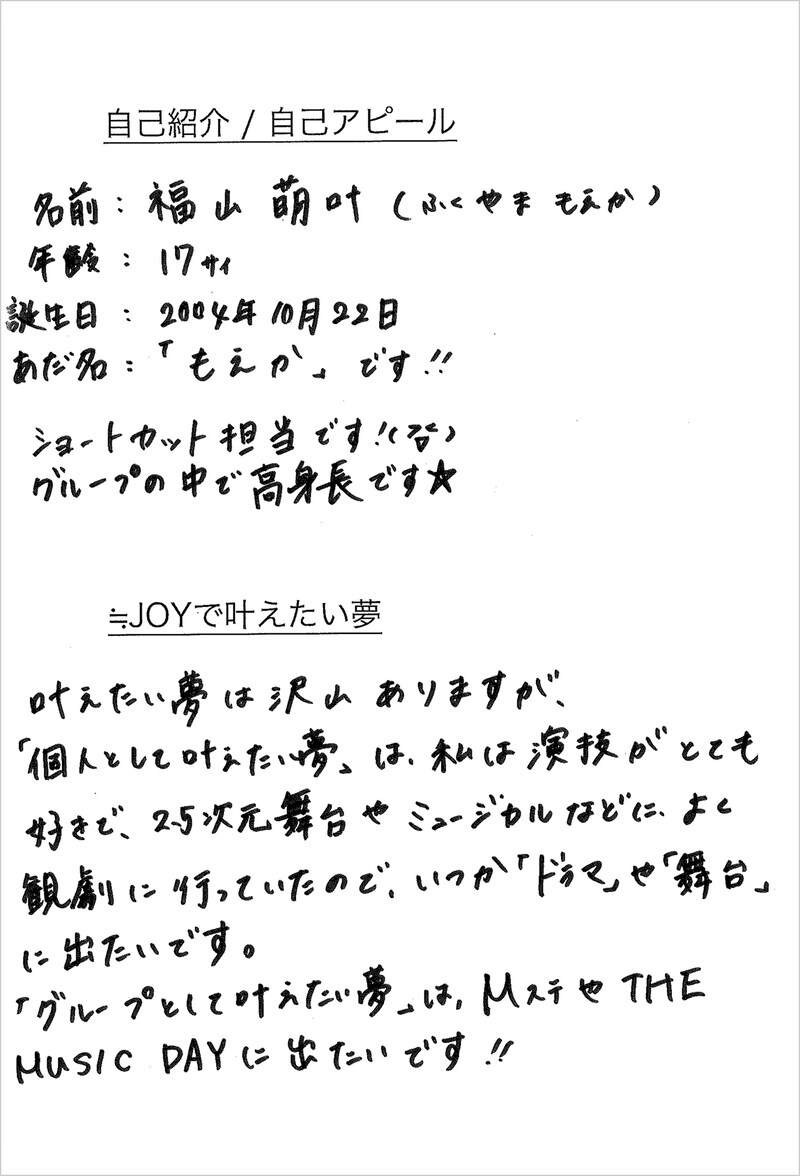 自己紹介 / 自己アピール
名前：福山 萌叶（ふくやま もえか）
年齢：17サイ
誕生日：2004年10月22日
あだ名：「もえか」です!!
ショートカット担当です!
グループの中で高身長です☆
≒JOYで叶えたい夢
叶えたい夢は沢山ありますが、
「個人として叶えたい夢」は、私は演技がとても
好きで、2.5次元舞台やミュージカルなどに、よく
観劇に行っていたので、いつか「ドラマ」や「舞台」
に出たいです。
「グループとして叶えたい夢」は、MステやTHE
MUSIC DAYに出たいです!!